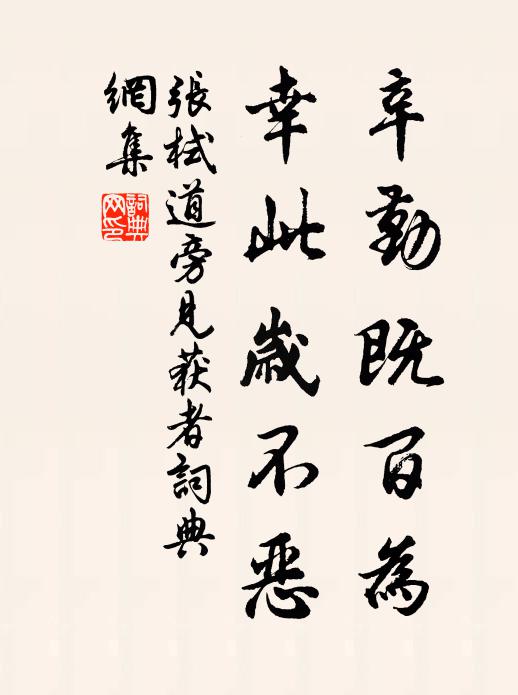 辛勤既百為
幸此歲不惡
張栻道旁見获者詞典
網集
詞典
网印